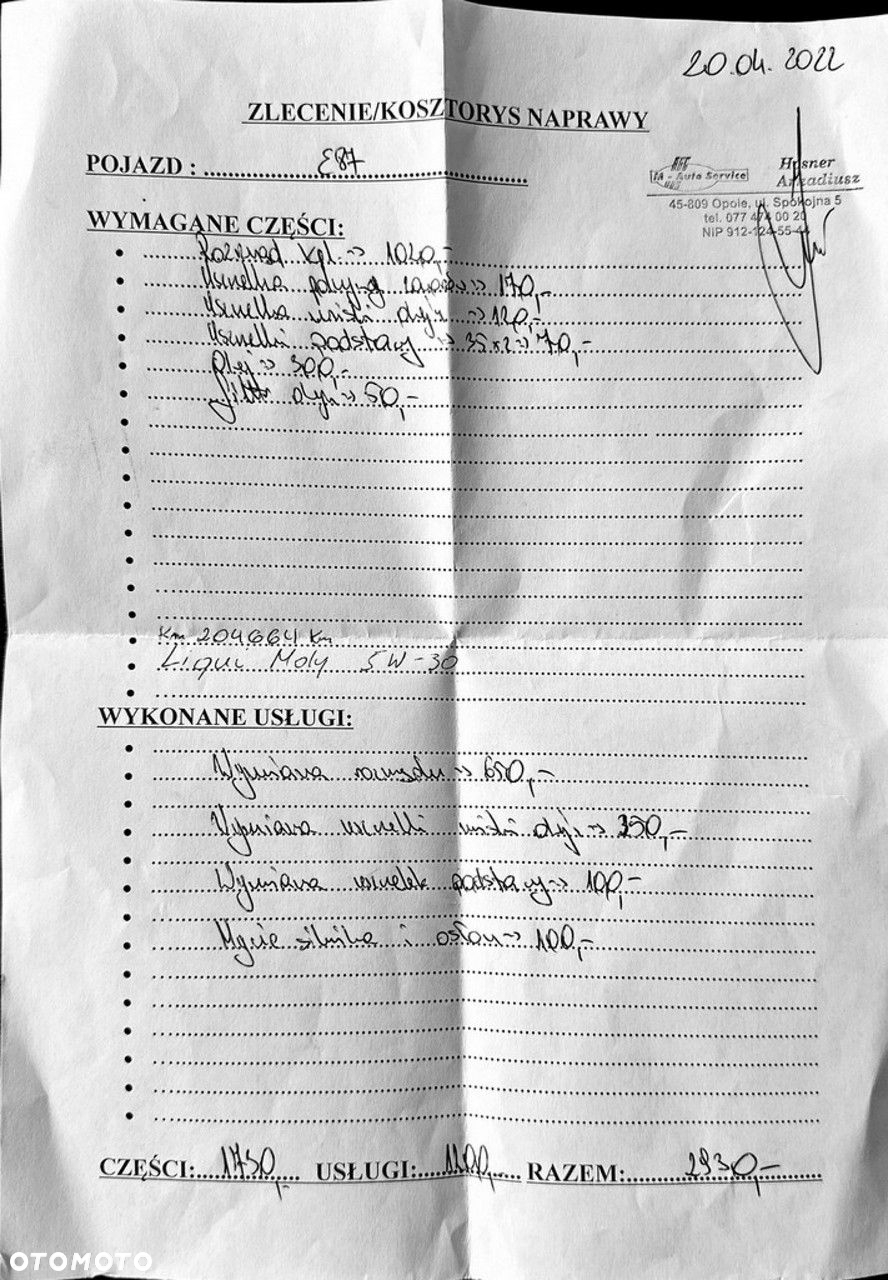 20.04.2022
ZLECENIE/KOSZTORYS NAPRAWY
POJAZD : E87
FA - Auto Service
Husner
Arkadiusz
45-809 Opole, ul. Spokojna 5
tel. 077 474 00 20
NIP 912-124-55-
WYMAGANE CZĘŚCI:
Rozrząd kpl. => 1020,-
Uszczelka pokrywy zaworów => 170,-
Uszczelka miski oleju => 120,-
Uszczelki podstawy => 35x2 => 70,-
Olej => 300,-
Filtr oleju => 50,-
Km 204664 km
Liqui Moly 5W-30
WYKONANE USŁUGI:
Wymiana rozrządu => 650,-
Wymiana uszczelki miski oleju => 350,-
Wymiana uszczelek podstawy => 100,-
Mycie silnika i osłon => 100,-
CZĘŚCI: 1730,- USŁUGI: 1200,- RAZEM: 2930,-
OTOMOTO